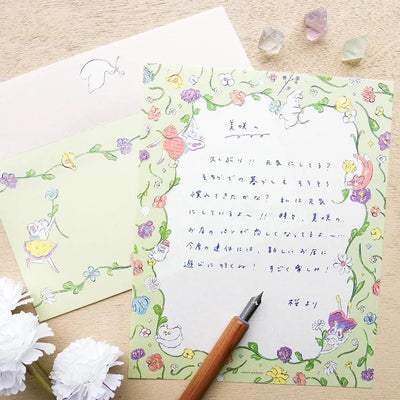 美咲へ
久しぶり!! 元気にしてる?
そちらでの暮らしもそろそろ
慣れてきたかな? 私は元気
にしているよ〜!! 時々、美咲の
お店のパンが恋しくなってるよ〜…
今度の連休には、新しいお店に
遊びに行くね! すごく楽しみ!
桜より